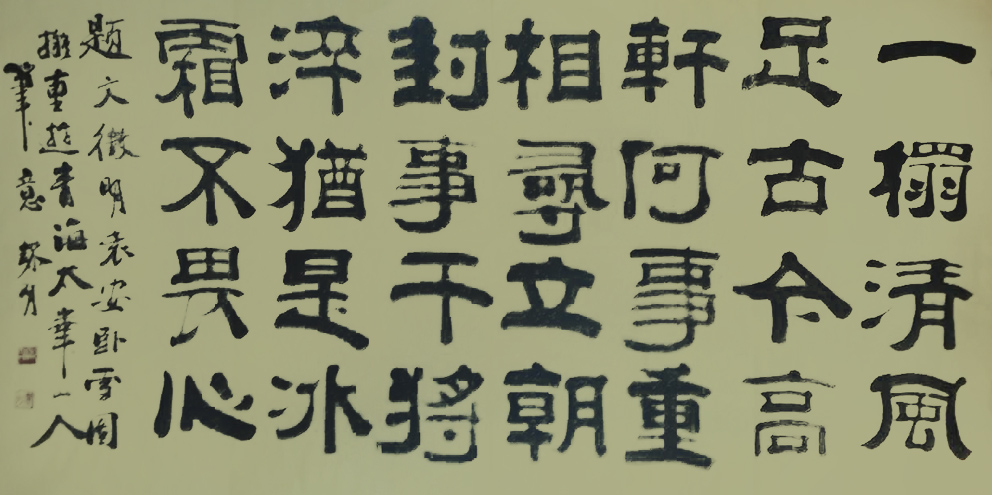 一榻清風
足古今高
軒何事重
相尋立朝
封事干將
淬猶是冰
霜不畏心
題文徵明袁安臥雪圖
青海太華一人
筆意